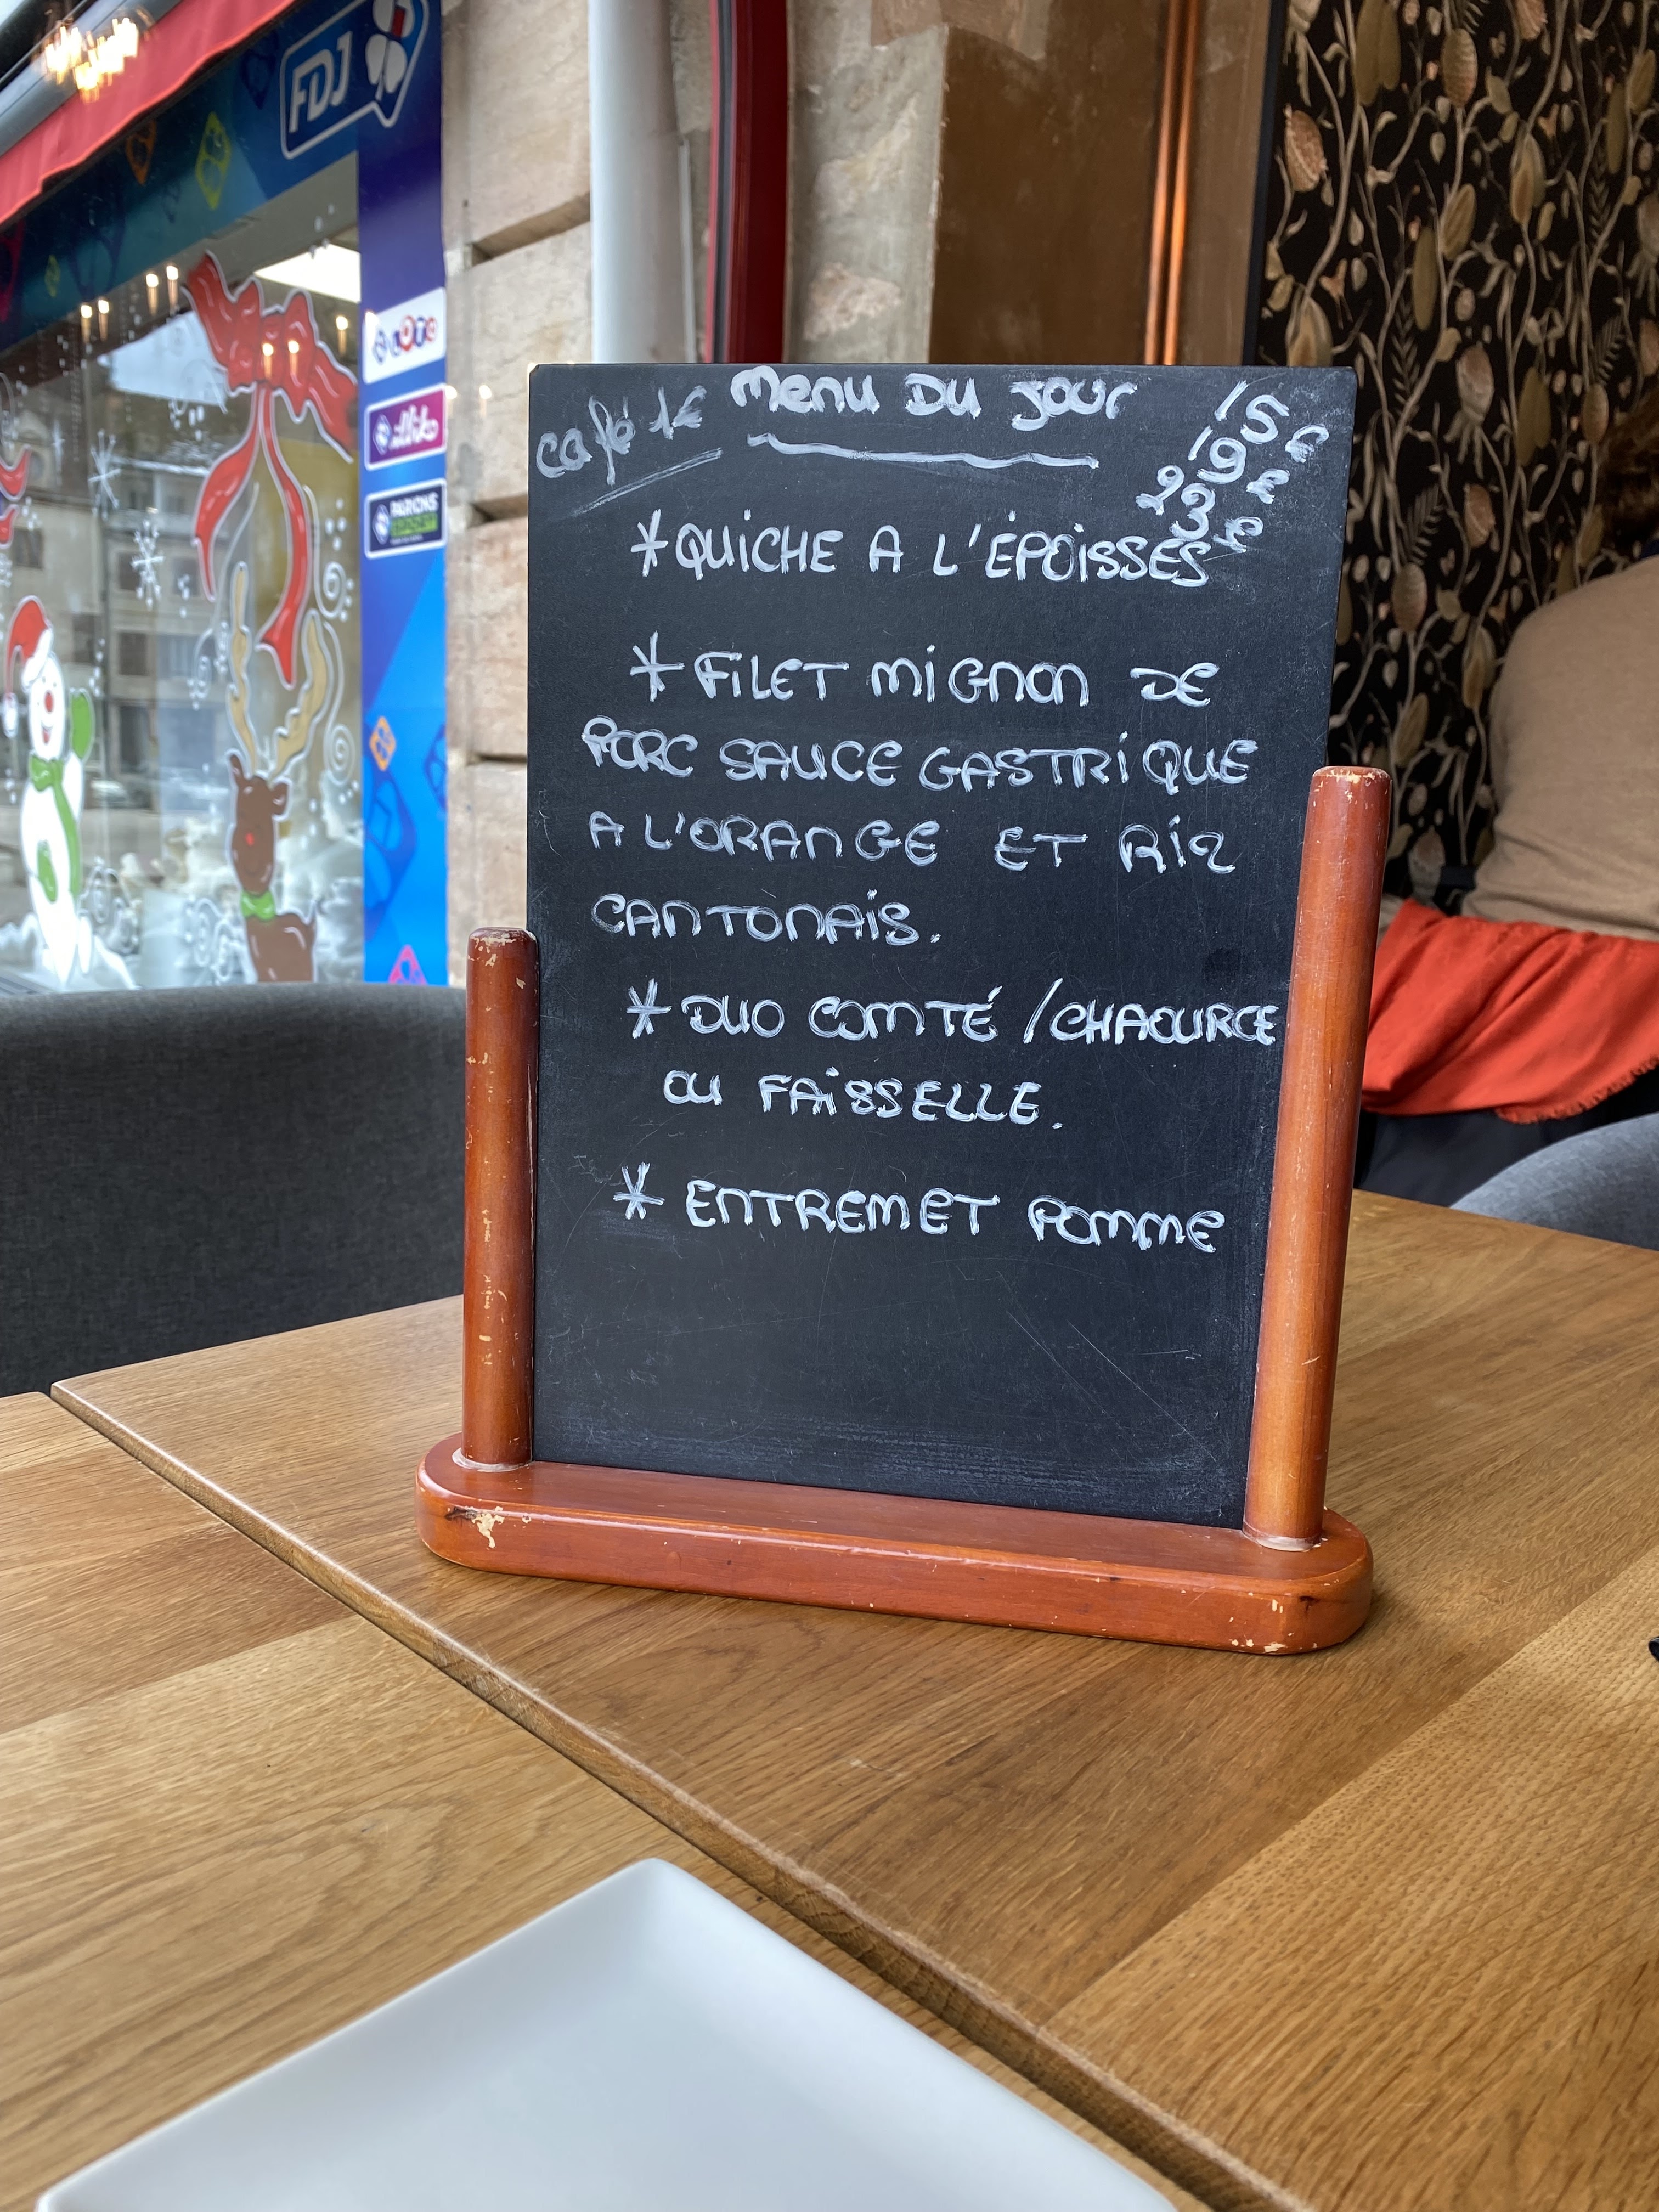 FDJ
LOTO
illiko
PARIONS
SPORT
café 1€
menu DU jour
15€
19€
23€
*QUICHE A L'ÉPOISSES
*FILET MIGNON DE
PORC SAUCE GASTRIQUE
A L'ORANGE ET RIZ
CANTONAIS.
*DUO COMTÉ /CHAOURCE
OU FAISSELLE.
*ENTREMET POMME